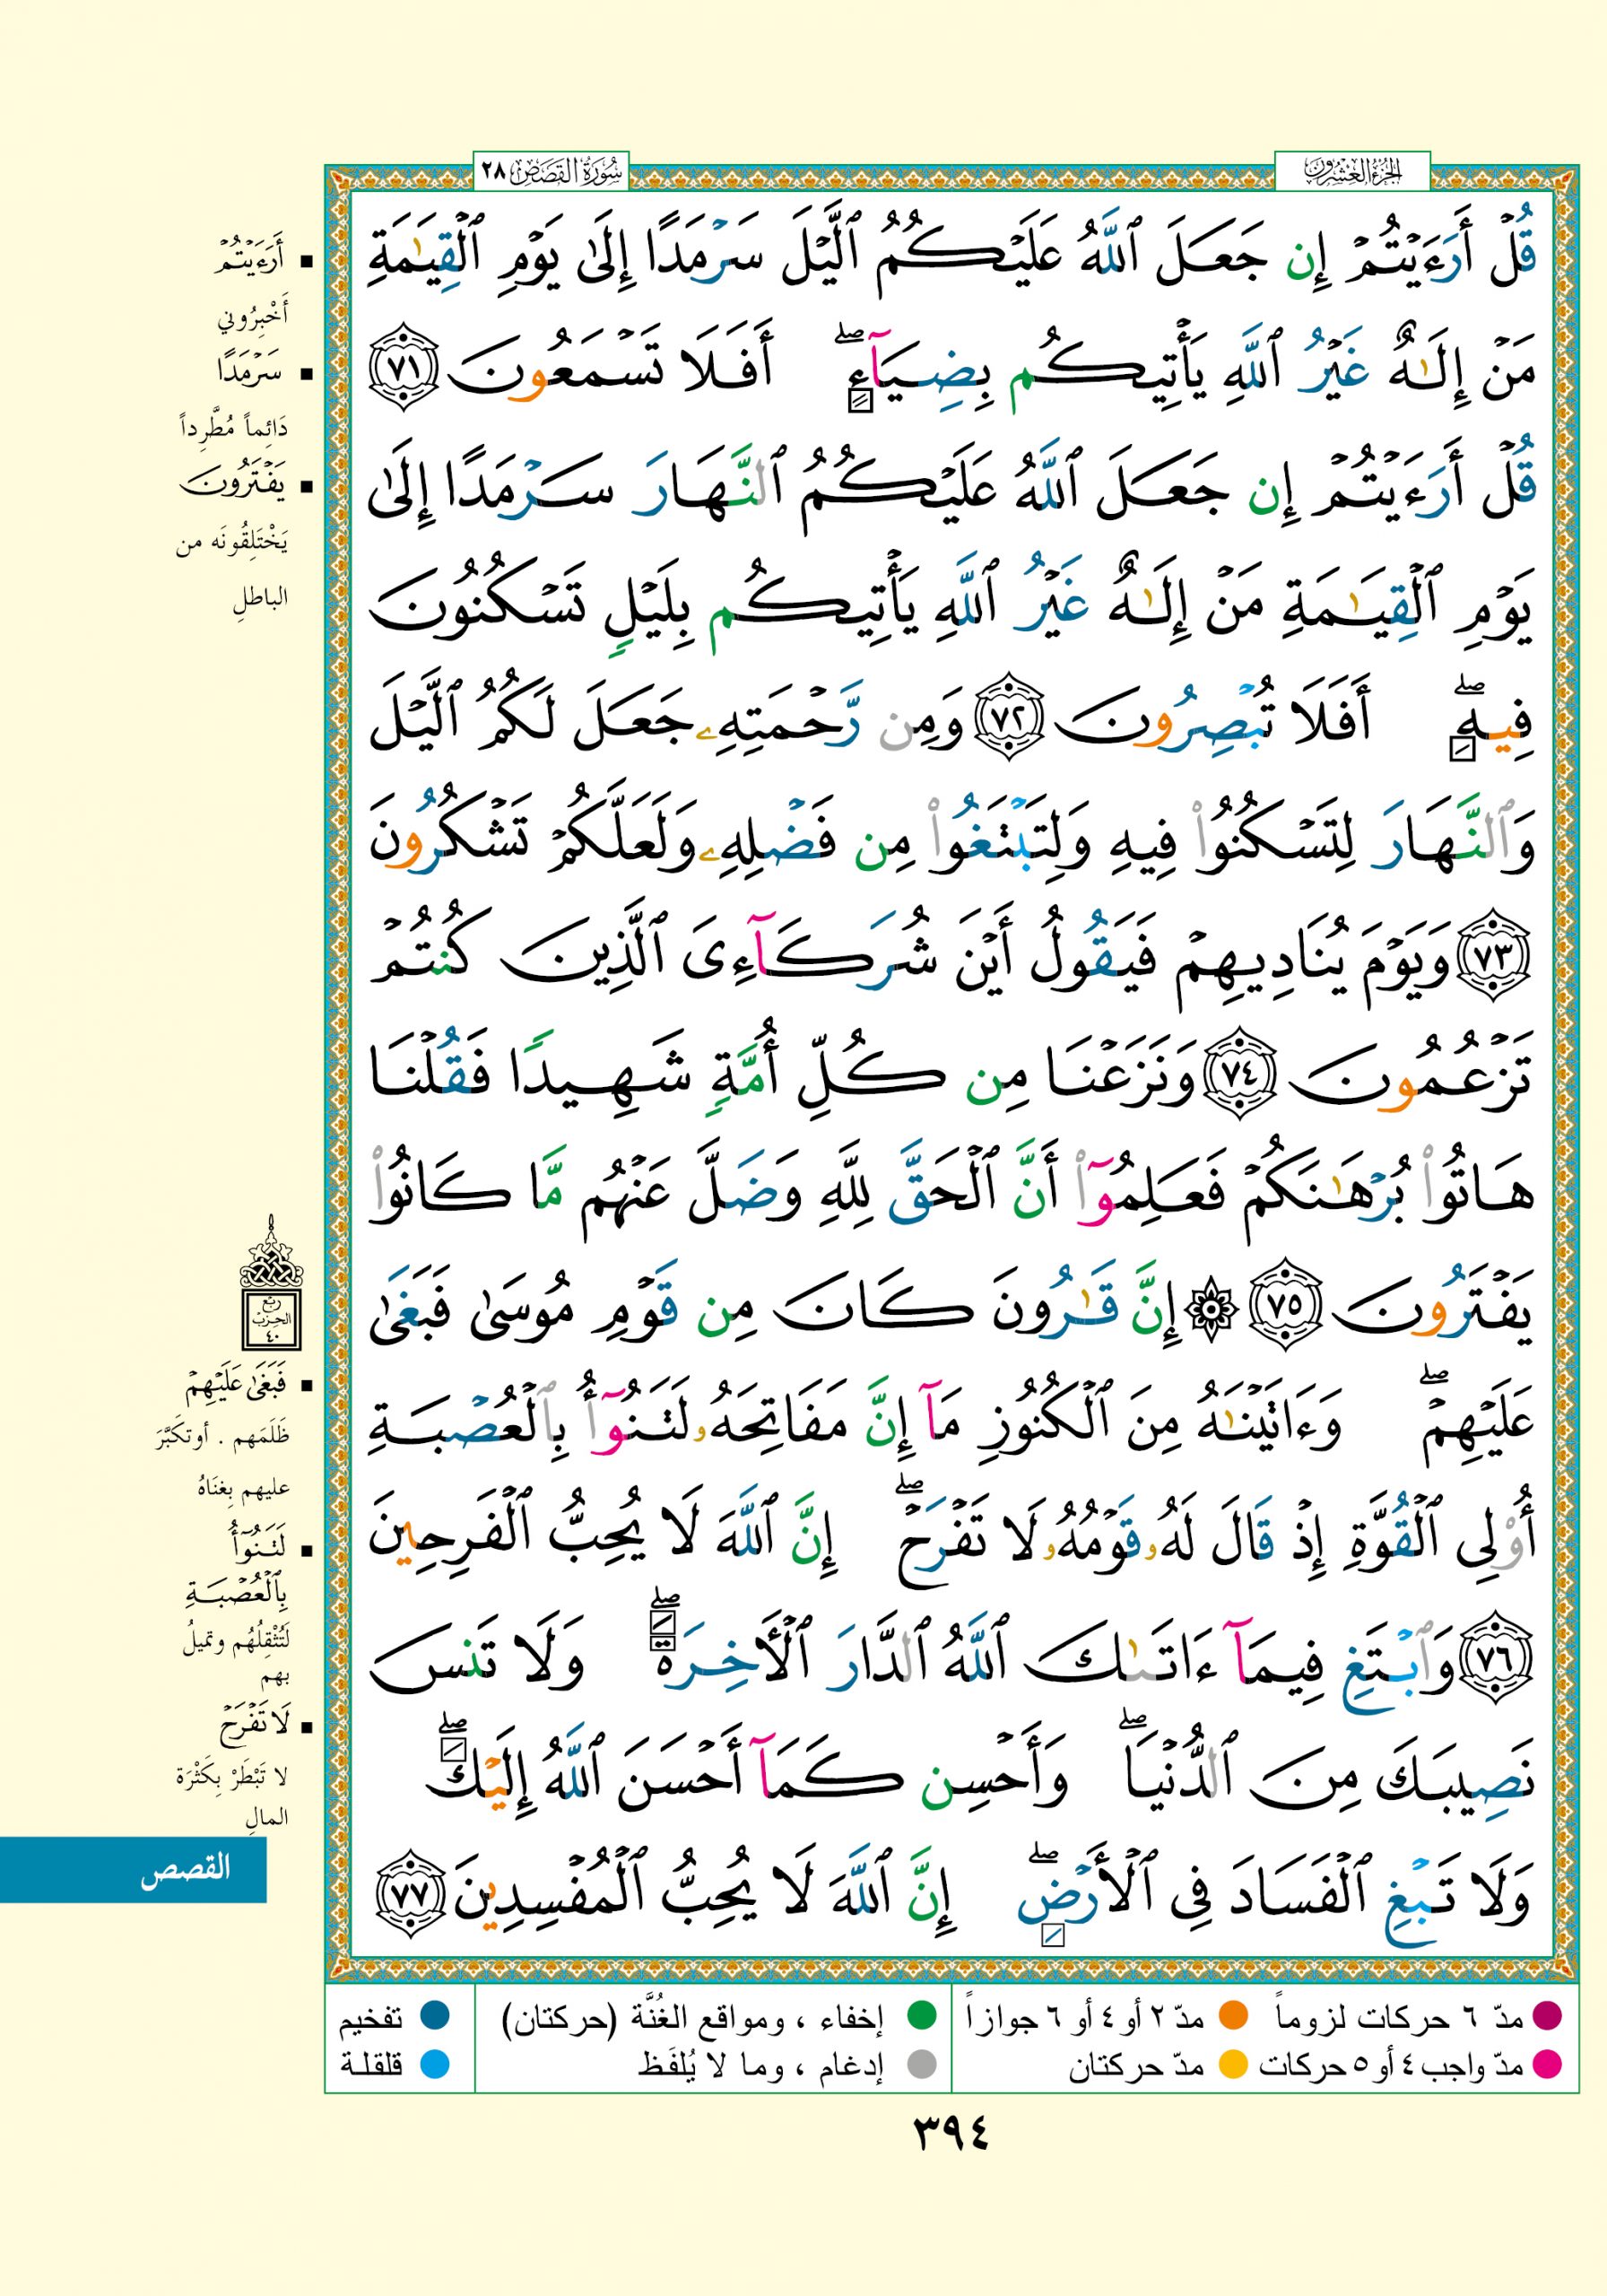 الجزء العشرون
سورة القصص ٢٨
قُلْ أَرَءَيْتُمْ إِن جَعَلَ ٱللَّهُ عَلَيْكُمُ ٱلَّيْلَ سَرْمَدًا إِلَىٰ يَوْمِ ٱلْقِيَـٰمَةِ
مَنْ إِلَـٰهٌ غَيْرُ ٱللَّهِ يَأْتِيكُم بِضِيَآءٍ ۖ أَفَلَا تَسْمَعُونَ ٧١
قُلْ أَرَءَيْتُمْ إِن جَعَلَ ٱللَّهُ عَلَيْكُمُ ٱلنَّهَارَ سَرْمَدًا إِلَىٰ
يَوْمِ ٱلْقِيَـٰمَةِ مَنْ إِلَـٰهٌ غَيْرُ ٱللَّهِ يَأْتِيكُم بِلَيْلٍ تَسْكُنُونَ
فِيهِ ۖ أَفَلَا تُبْصِرُونَ ٧٢ وَمِن رَّحْمَتِهِۦ جَعَلَ لَكُمُ ٱلَّيْلَ
وَٱلنَّهَارَ لِتَسْكُنُوا۟ فِيهِ وَلِتَبْتَغُوا۟ مِن فَضْلِهِۦ وَلَعَلَّكُمْ تَشْكُرُونَ
٧٣ وَيَوْمَ يُنَادِيهِمْ فَيَقُولُ أَيْنَ شُرَكَآءِىَ ٱلَّذِينَ كُنتُمْ
تَزْعُمُونَ ٧٤ وَنَزَعْنَا مِن كُلِّ أُمَّةٍ شَهِيدًا فَقُلْنَا
هَاتُوا۟ بُرْهَـٰنَكُمْ فَعَلِمُوٓا۟ أَنَّ ٱلْحَقَّ لِلَّهِ وَضَلَّ عَنْهُم مَّا كَانُوا۟
يَفْتَرُونَ ٧٥ ۞ إِنَّ قَـٰرُونَ كَانَ مِن قَوْمِ مُوسَىٰ فَبَغَىٰ
عَلَيْهِمْ ۖ وَءَاتَيْنَـٰهُ مِنَ ٱلْكُنُوزِ مَآ إِنَّ مَفَاتِحَهُۥ لَتَنُوٓأُ بِٱلْعُصْبَةِ
أُو۟لِى ٱلْقُوَّةِ إِذْ قَالَ لَهُۥ قَوْمُهُۥ لَا تَفْرَحْ ۖ إِنَّ ٱللَّهَ لَا يُحِبُّ ٱلْفَرِحِينَ
٧٦ وَٱبْتَغِ فِيمَآ ءَاتَىٰكَ ٱللَّهُ ٱلدَّارَ ٱلْـَٔاخِرَةَ ۖ وَلَا تَنسَ
نَصِيبَكَ مِنَ ٱلدُّنْيَا ۖ وَأَحْسِن كَمَآ أَحْسَنَ ٱللَّهُ إِلَيْكَ ۖ
وَلَا تَبْغِ ٱلْفَسَادَ فِى ٱلْأَرْضِ ۖ إِنَّ ٱللَّهَ لَا يُحِبُّ ٱلْمُفْسِدِينَ ٧٧
أَرَءَيْتُمْ
أَخْبِرُوني
سَرْمَدًا
دَائِماً مُطَّرِداً
يَفْتَرُونَ
يَخْتَلِقُونَه من
الباطلِ
ربع
الحزب
٤٠
فَبَغَىٰ عَلَيْهِمْ
ظَلَمَهم . أو تكَبَّرَ
عليهم بِغنَاهُ
لَتَنُوٓأُ
بِٱلْعُصْبَةِ
لَتُثْقِلُهُم وتميلُ
بهم
لَا تَفْرَحْ
لا تَبْطَرْ بِكَثْرَة
المالِ
القصص
مدّ ٦ حركات لزوماً
مدّ ٢ أو ٤ أو ٦ جوازاً
إخفاء ، ومواقع الغُنَّة (حركتان)
تفخيم
مدّ واجب ٤ أو ٥ حركات
مدّ حركتان
إدغام ، وما لا يُلفَظ
قلقلة
٣٩٤